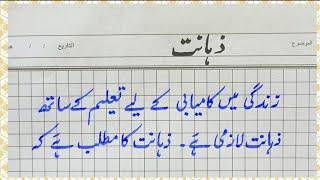 الموضوع
ذہانت
التاريخ / /
زندگی میں کامیابی کے لیے تعلیم کے ساتھ
ذہانت لازمی ہے۔ ذہانت کا مطلب ہے کہ